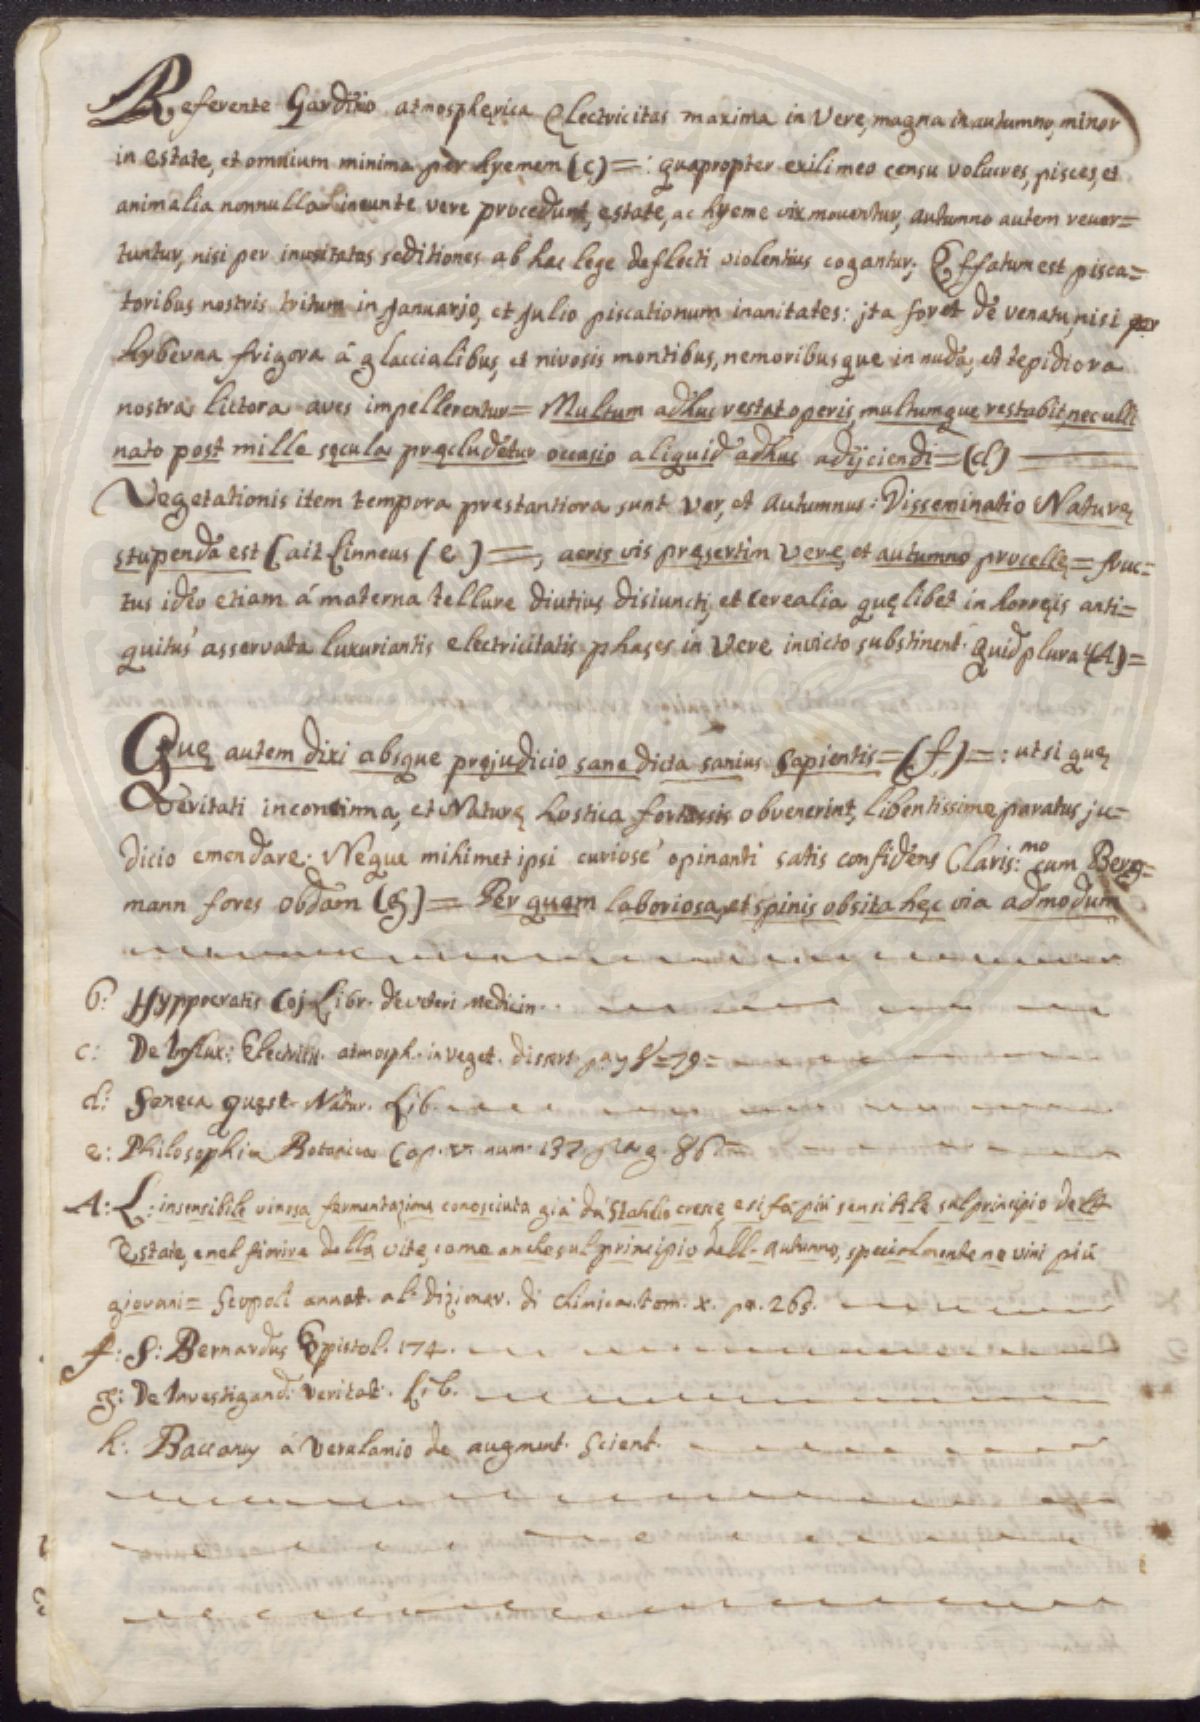 Referente Gardinio atmosphęrica Electricitas maxima in Vere, magna in autumno, minor
in estate, et omnium minima per hyemem (c) =: quapropter exili meo censu volucres, pisces, et
animalia nonnulla ineunte vere procedunt, estate, ac hyeme vix moventur, autumno autem rever=
tuntur, nisi per inusitatas seditiones ab hac lege deflecti violentius cogantur; Effatum est pisca=
toribus nostris tritum in Januarjo, et Julio piscationum inanitates: jta foret de venatu, nisi per
hyberna frigora á glaccialibus, et nivosis montibus, nemoribusque in nuda, et tepidiora
nostra littora aves impellerentur = Multum adhuc restat operis, multumque restabit, nec ulli
nato post mille sęcula pręcludetur occasio aliquid adhuc adijciendi = (d)
Vegetationis item tempora prestantiora sunt Ver, et Autumnus: Disseminatio Naturę
stupenda est (ait Linneus (e) =, aeris vis pręsertim Vere, et autumno procellę = fruc=
tus ideo etiam á materna tellure diutius disiuncti, et Cerealia quęlibet in horreis anti=
quitus asservata luxuriantis electricitatis phases in Vere invicto substinent. Quid plura (A) =
Quę autem dixi absque prejudicio sane dicta sanius Sapientis = (f) =: ut si quę
Veritati inconcinna, et Naturę hostica fortassis obvenerint, libentissime paratus ju=
dicio emendare. Neque mihimet ipsi curiose opinanti satis confidens Claris:mo cum Berg=
mann fores obdam (g) = Per quem laboriosa, et spinis obsita hęc via admodum
b: Hyppocratis Coj Libr. de veteri Medicin.
c: De Influx: Electricit. atmosph. in veget. dissert. pag 8 = 19 =
d: Seneca quęst. Natur. Lib.
e: Philosophia Botanica Cap. V. num. 132. pag. 86 =
A: L: insensibile vinosa fermentazione conosciuta giá da Stahlio cresce, e si fá piú sensibile sul principio dell'
Estate, e nel fiorire della vite, come anche sul principio dell'Autunno, specialmente ne vini piú
giovani = Scopoli annot. al dizionar. di chimica. tom. x. pa. 265.
f: S: Bernardus Epistol. 174.
g: De Investigand. Veritat. Lib.
h: Baccony á Verulamio de augment. Scient.